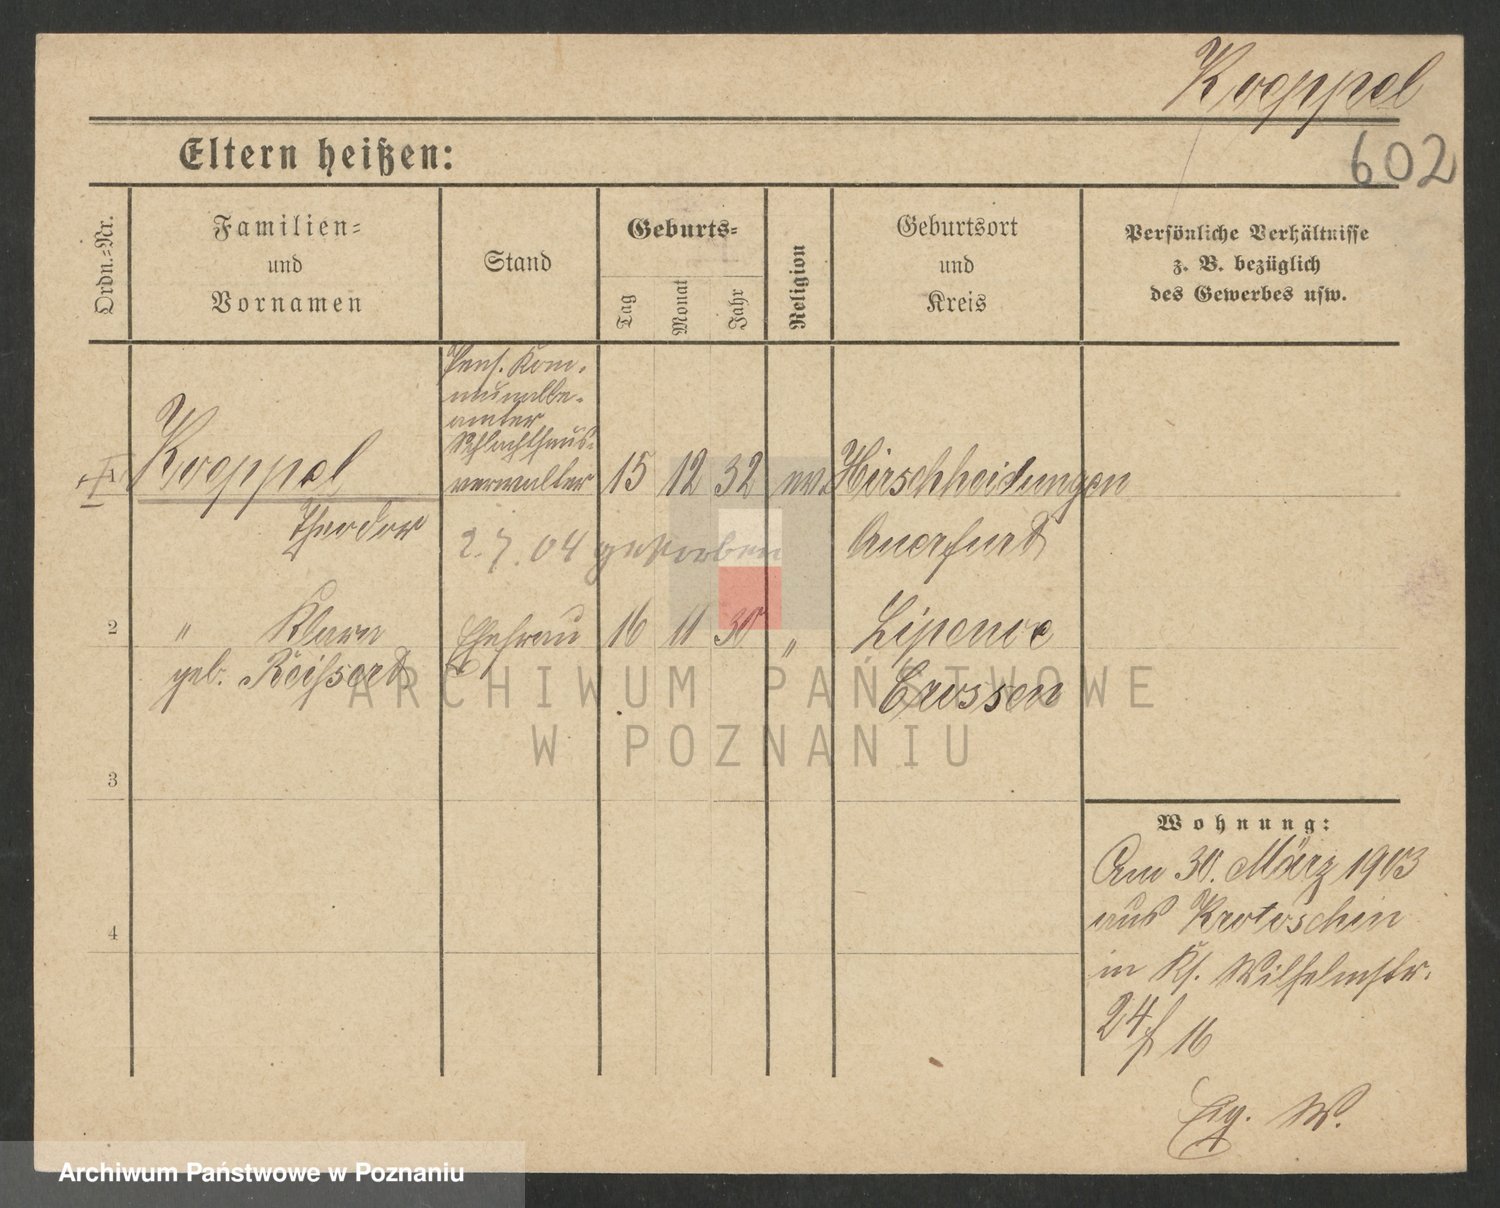 Koeppel
602
Eltern heißen:
Ordn.-Nr.
Familien-
und
Vornamen
Stand
Geburts-
Tag
Monat
Jahr
Religion
Geburtsort
und
Kreis
Persönliche Verhältnisse
z. B. bezüglich
des Gewerbes usw.
Pens. Kom-
munalbe-
amter
Schlachthaus-
verwalter
1 Koeppel 15 12 32 ev. Hirschheidungen
Theodor
2.7.04 gestorben
Querfurt
2 " Klara Ehefrau 16 11 30 "
geb. Reissert
Crossen
3
4
Wohnung:
Am 30. März 1903
aus Krotoschin
in Ks. Wilhelmstr.
24 f 16
W.
ARCHIWUM PAŃSTWOWE
W POZNANIU
Archiwum Państwowe w Poznaniu